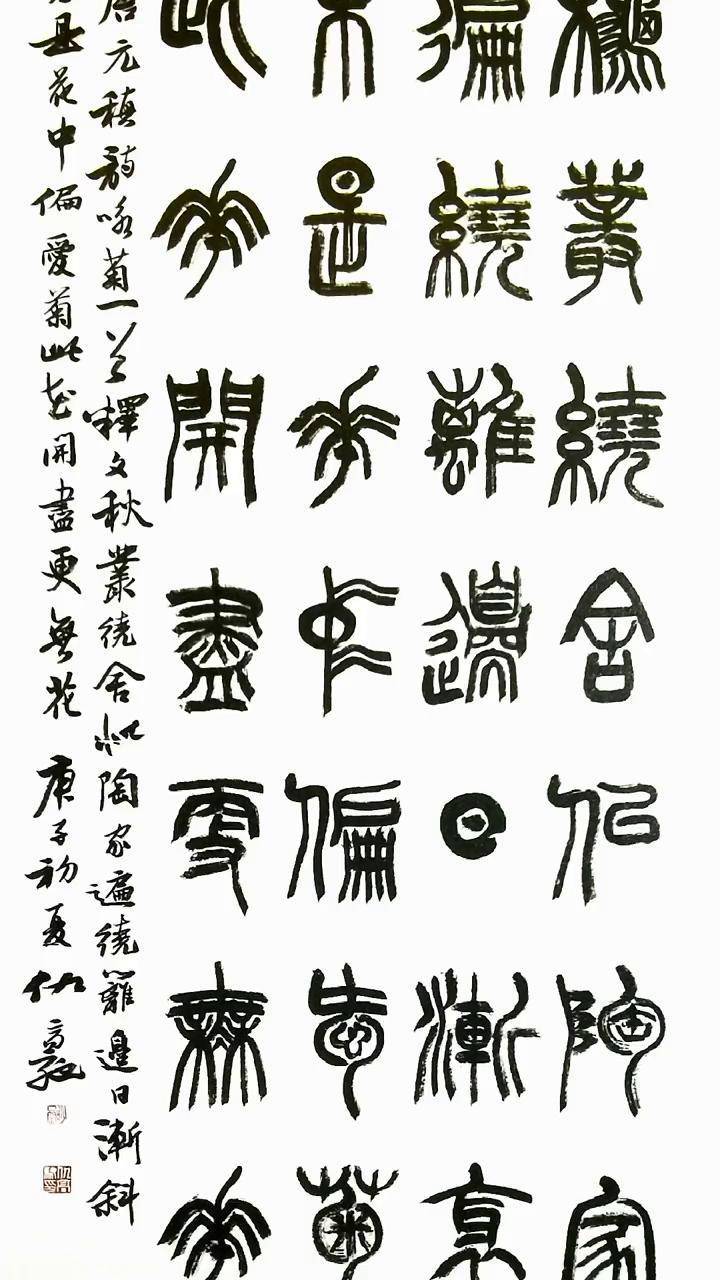 秋叢繞舍似陶家
徧繞離邊日漸衺
不是華中偏愛菊
此華開盡更無華
唐元稹詩咏菊一首釋文秋叢繞舍似陶家遍繞籬邊日漸斜
不是花中偏愛菊此花開盡更無花庚子初夏仇高